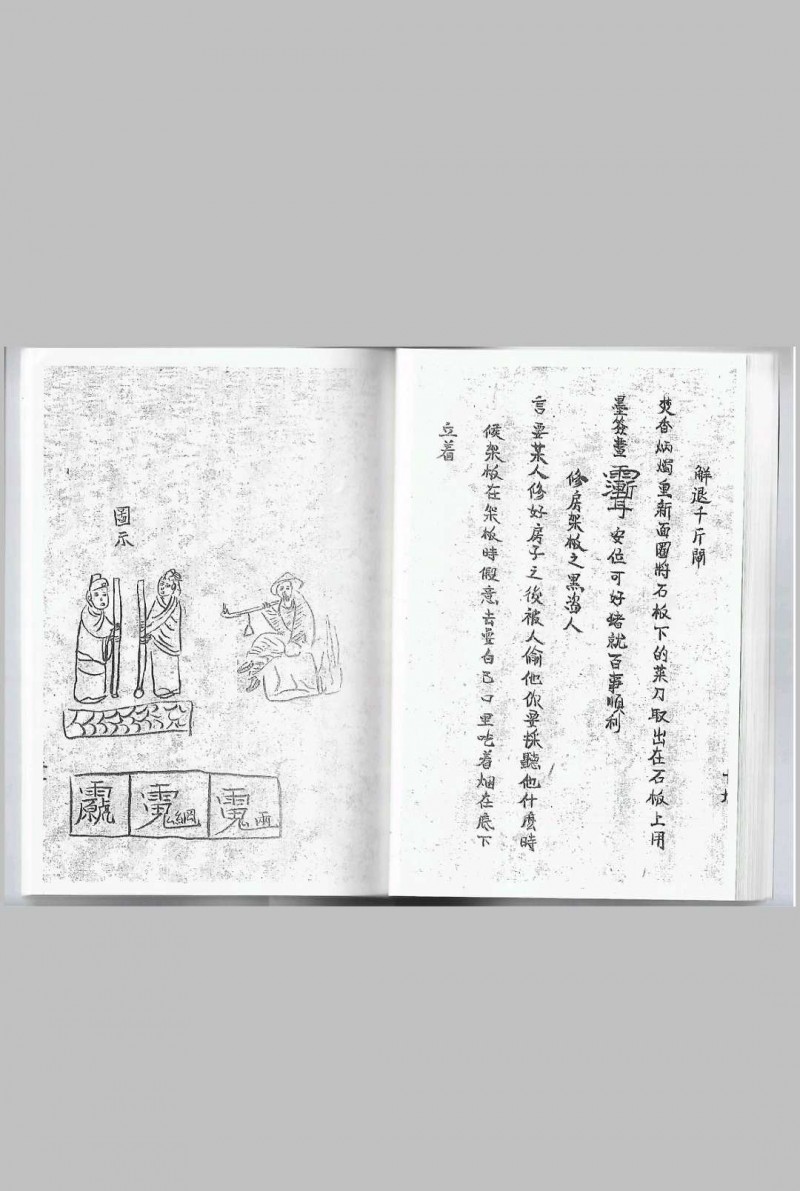 解退千斤閘
焚香炳燭重新面圖將石板下的菜刀取出在石板上用
墨簽畫 安位可好堵就百事順利
修房架板之黑盜人
言要某人修好房子之後被人偷他你要採聽他什麽時
候架板在架板時假意去量自己口里吃着烟在底下
立着
十九
圖示